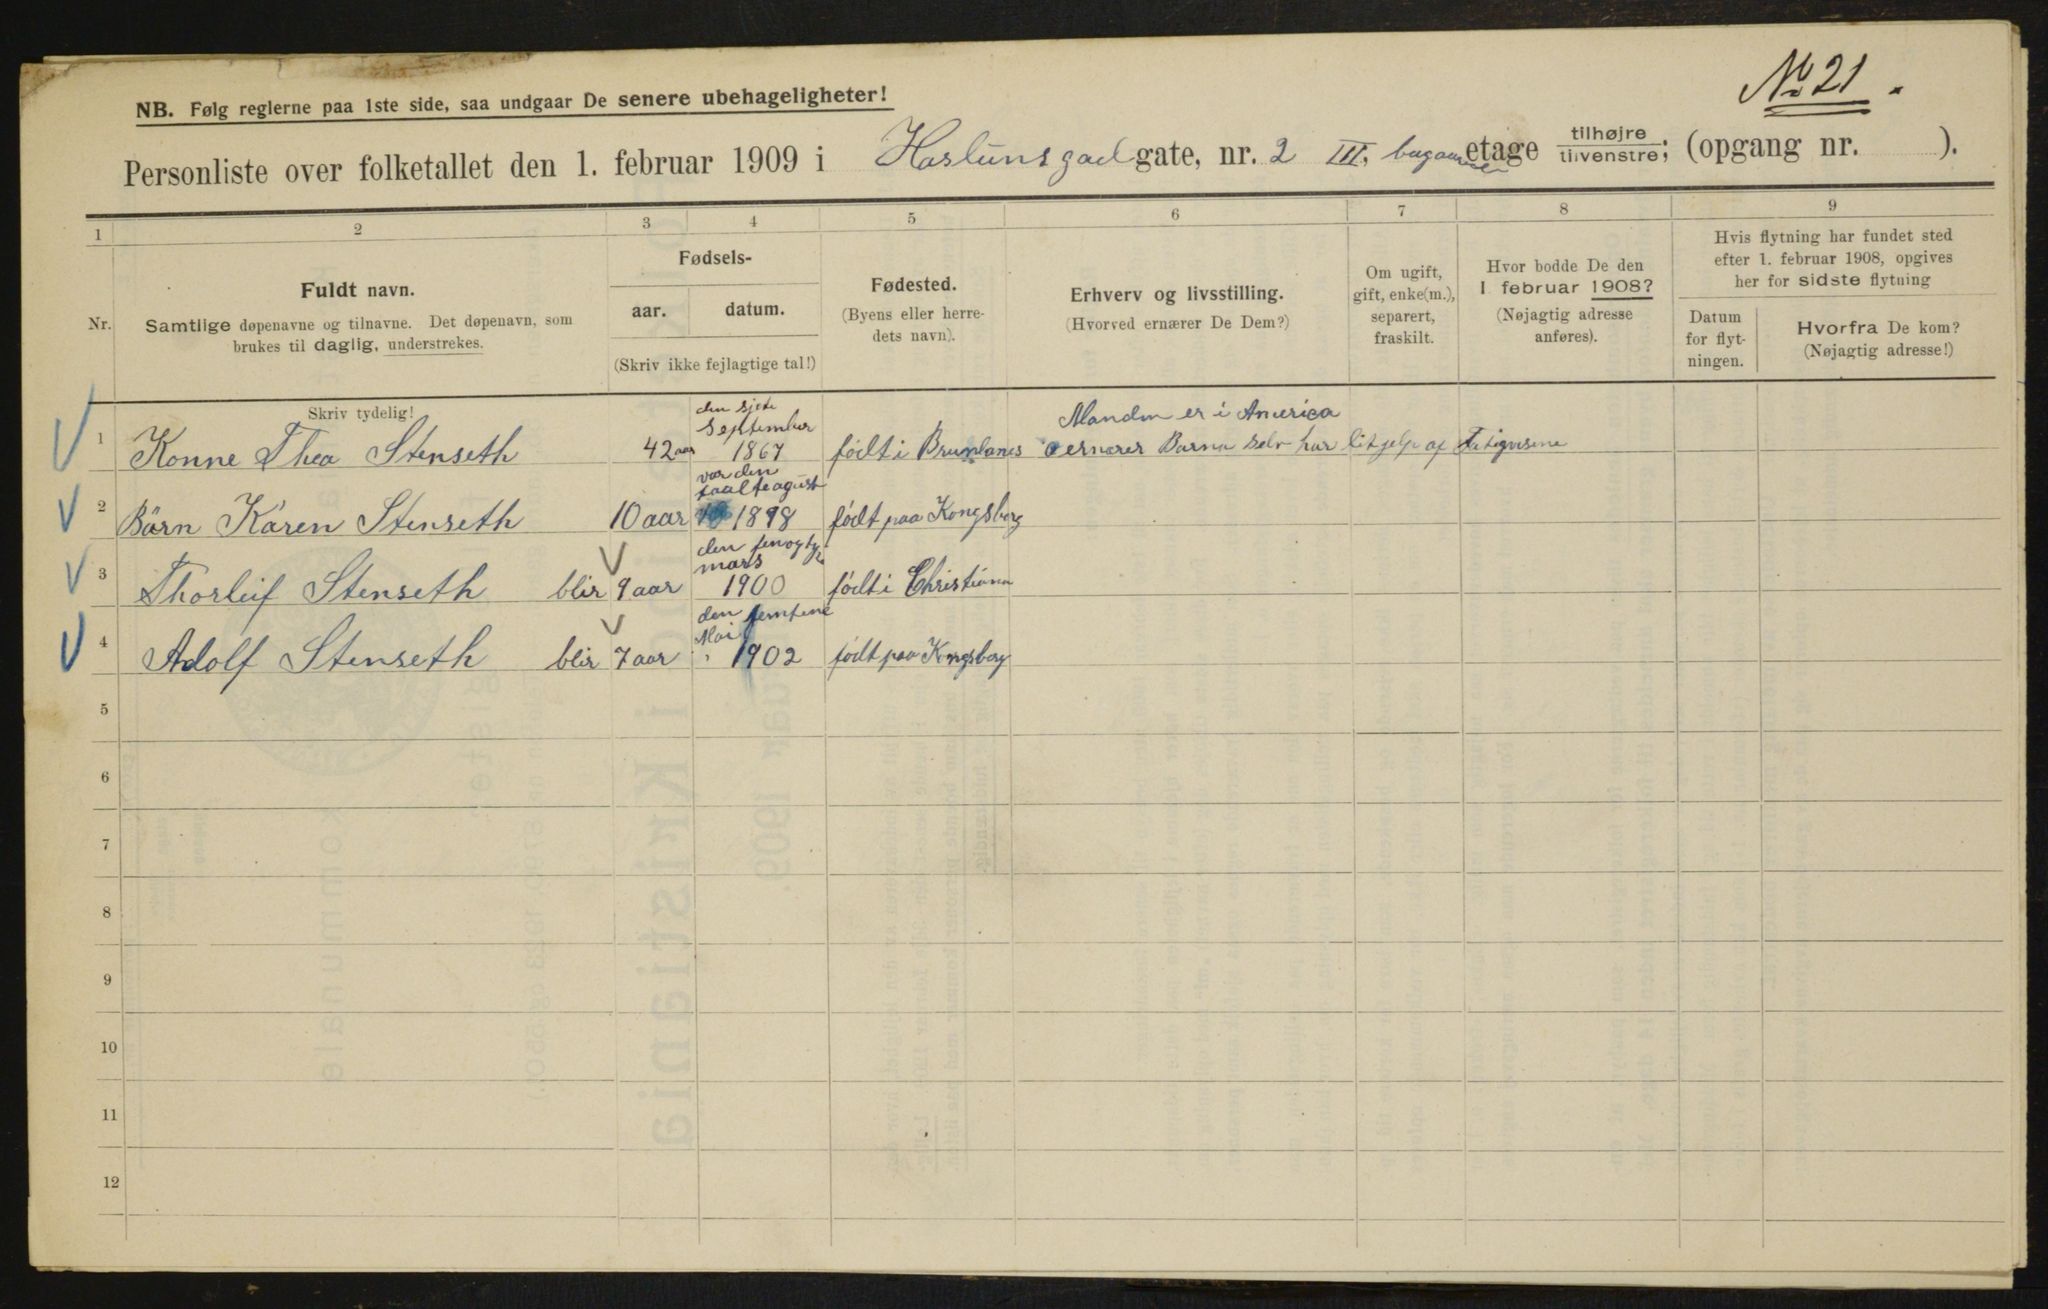 No 21.
NB. Følg reglerne paa 1ste side, saa undgaar De senere ubehageligheter!
Personliste over folketallet den 1. februar 1909 i Haslunsgad gate, nr. 2 III, etage tilhøjre / tilvenstre; (opgang nr. ).
1 2 3 4 5 6 7 8 9
Nr.
Fuldt navn.
Samtlige døpenavne og tilnavne. Det døpenavn, som
brukes til daglig, understrekes.
Fødsels-
aar. datum.
(Skriv ikke fejlagtige tal!)
Fødested.
(Byens eller herre-
dets navn).
Erhverv og livsstilling.
(Hvorved ernærer De Dem?)
Om ugift,
gift, enke(m.),
separert,
fraskilt.
Hvor bodde De den
1 februar 1908?
(Nøjagtig adresse
anføres).
Hvis flytning har fundet sted
efter 1. februar 1908, opgives
her for sidste flytning
Datum
for flyt-
ningen.
Hvorfra De kom?
(Nøjagtig adresse!)
Skriv tydelig!
den sjete
september
Manden er i America
1 Konne Thea Stenseth 42 aar 1867 født i Brunlanes ernærer Barna selv har lit jelp af
var den
taalte agust
2 Börn Karen Stenseth 10 aar 1898 født paa Kongsberg
den
mars
3 Thorleif Stenseth blir 9 aar 1900 født i Christiana
den femtene
Mai
4 Adolf Stenseth blir 7 aar 1902 født paa Kongsberg
5
6
7
8
9
10
11
12